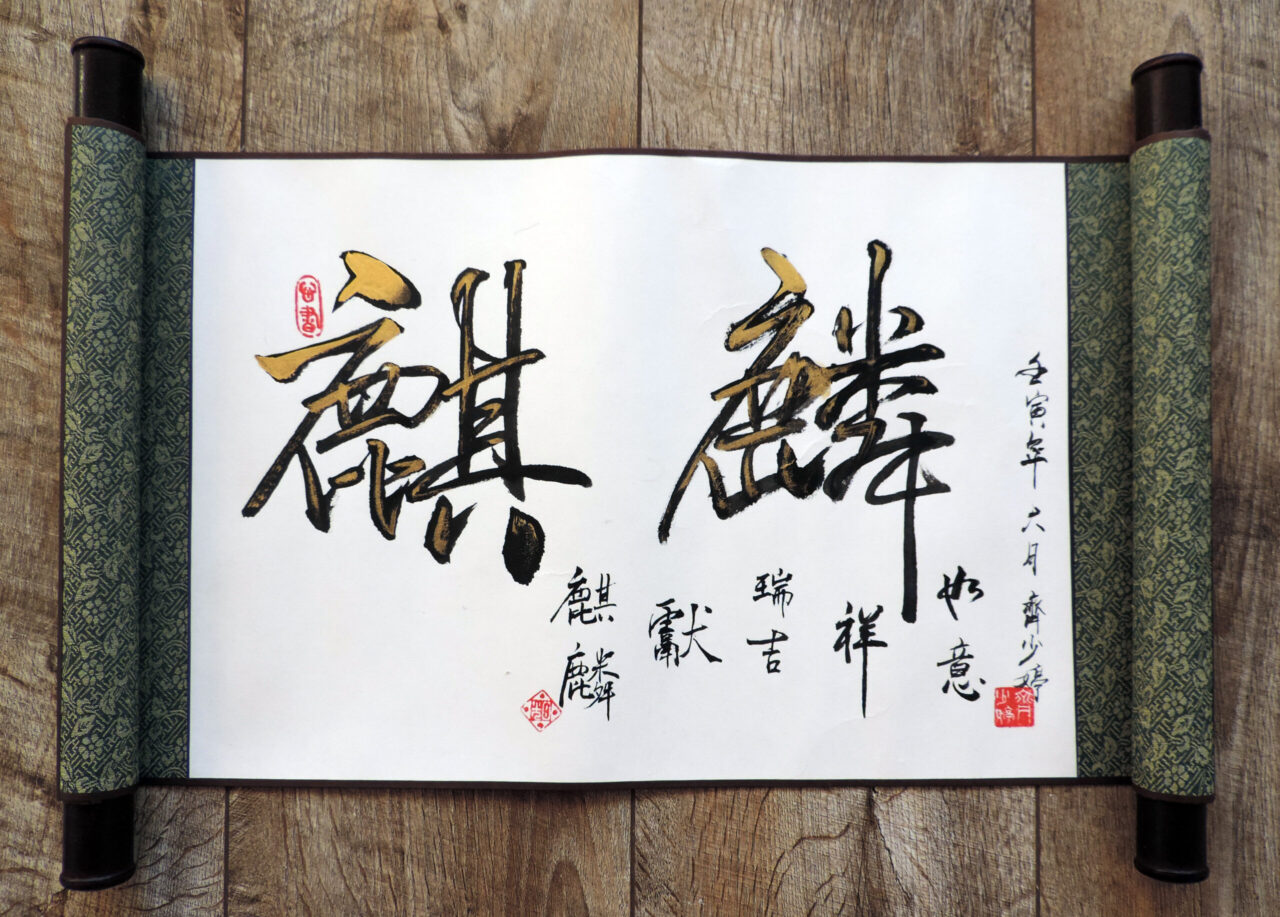 麒麟
麒麟
獻
瑞吉
祥
如意
壬寅年六月齊少婷